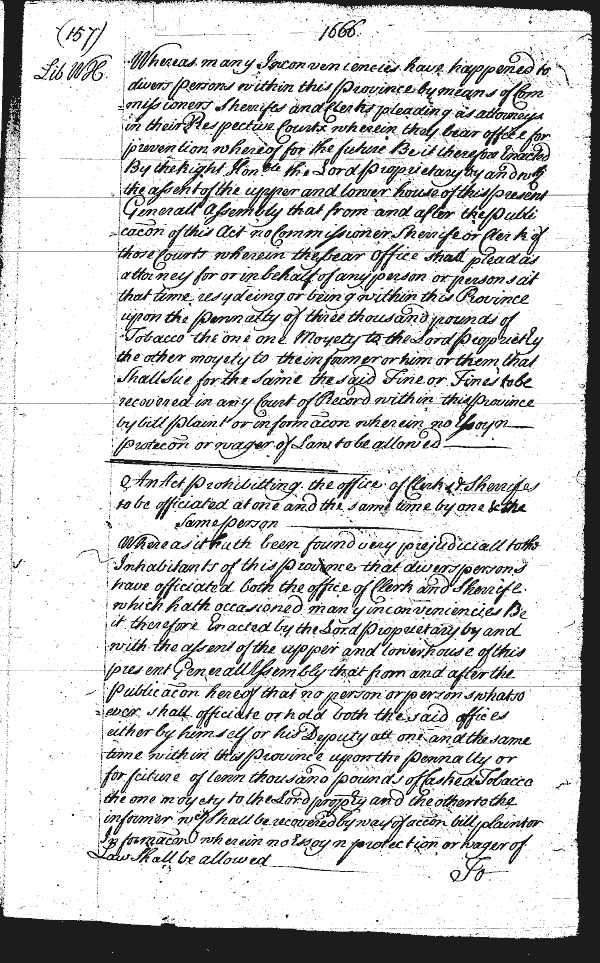 (157) 1666.
Lib WH.
Whereas many Inconveniencies have happened to
divers persons within this Province by means of Com
missioners Sherriffes and Clerks pleading as attorneys
in their Respective Courts wherein they bear office for
prevention whereof for the future Be it therefore Enacted
By the Right Honble the Lord Proprietary by and with
the assent of the upper and lower house of this present
Generall Assembly that from and after the publi
cacon of this Act no Commissioner Sherrife or Clerk of
those Courts wherein the bear office shall plead as
attorney for or in behalf of any person or persons at
that time resydeing or being within this Province
upon the pennalty of three thousand pounds of
Tobacco the one one Moyety to the Lord Proprietry
the other moyety to the informer or him or them that
shall sue for the same the said Fine or Fines to be
recovered in any Court of Record within this Province
by bill plaint or informacon wherein no Essoyn
protecon or wager of Law to be allowed
An Act prohibitting the office of Clerks & Sherrifes
to be officiated at one and the same time by one & the
same person
Whereas it hath been found very prejudiciall to the
Inhabitants of this province that divers persons
have officiated both the office of Clerk and Sherife
which hath occasioned many inconveniencies Be
it therefore Enacted by the Lord Proprietary by and
with the assent of the upper and lower house of this
present Generall Assembly that from and after the
publicacon hereof that no person or persons whatso
ever shall officiate or hold both the said offices
either by himself or his Deputy att one and the same
time within this Province upon the pennalty or
forfeiture of tenn thousand pounds of Casked Tobacco
the one moyety to the Lord propry and the other to the
informer wch shall be recovered by way of accon bill plaint or
Informacon wherein no Essoyn protection or wager of
Law shall be allowed
To